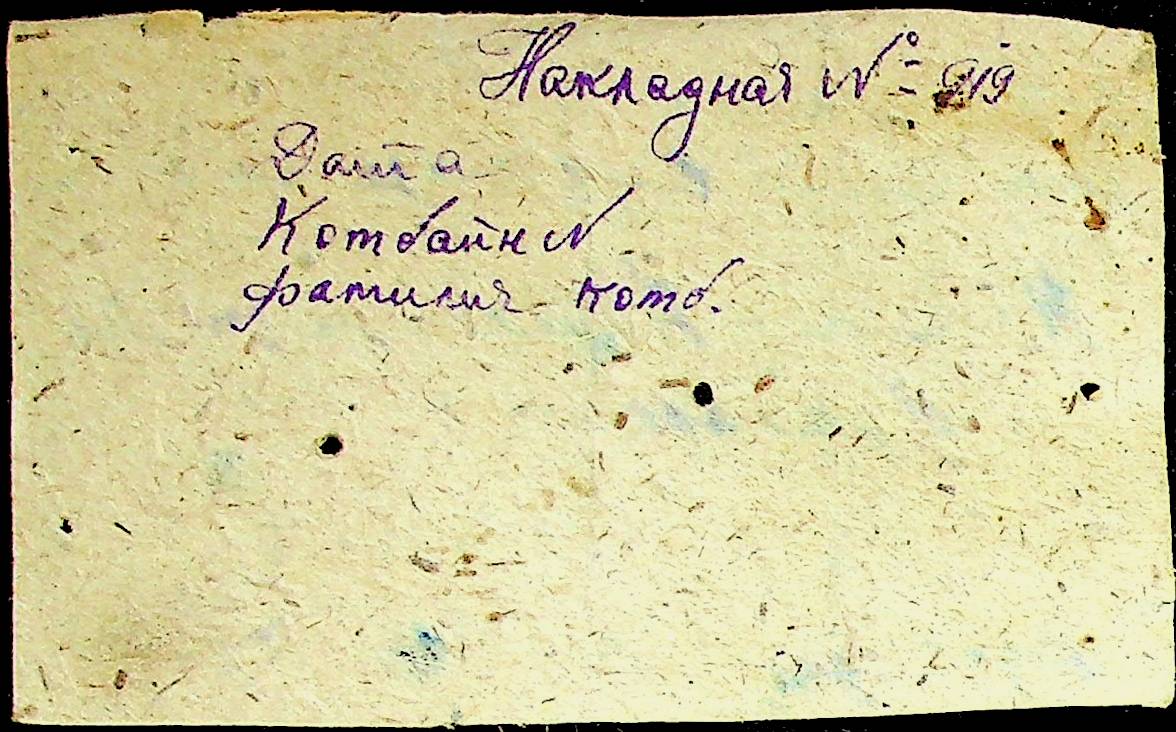 Накладная № 919
Дата
Комбайн N
фамилия комб.